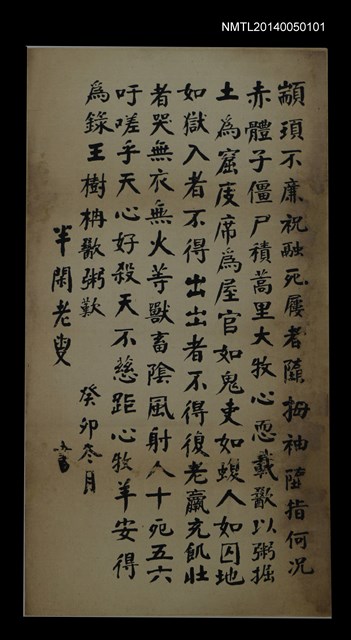 NMTL20140050101
顓頊不廉祝融死屨者隨拇袖隨指何況
赤體子僵尸積蒿里大牧心惡載歠以粥掘
土為窟庋席為屋官如鬼吏如蝮人如囚地
如獄入者不得出出者不得復老羸充飢壯
者哭無衣無火等獸畜陰風射人十死五六
吁嗟乎天心好殺天不慈距心牧羊安得
為錄王樹枏歠粥歎
半閑老叟
癸卯冬月